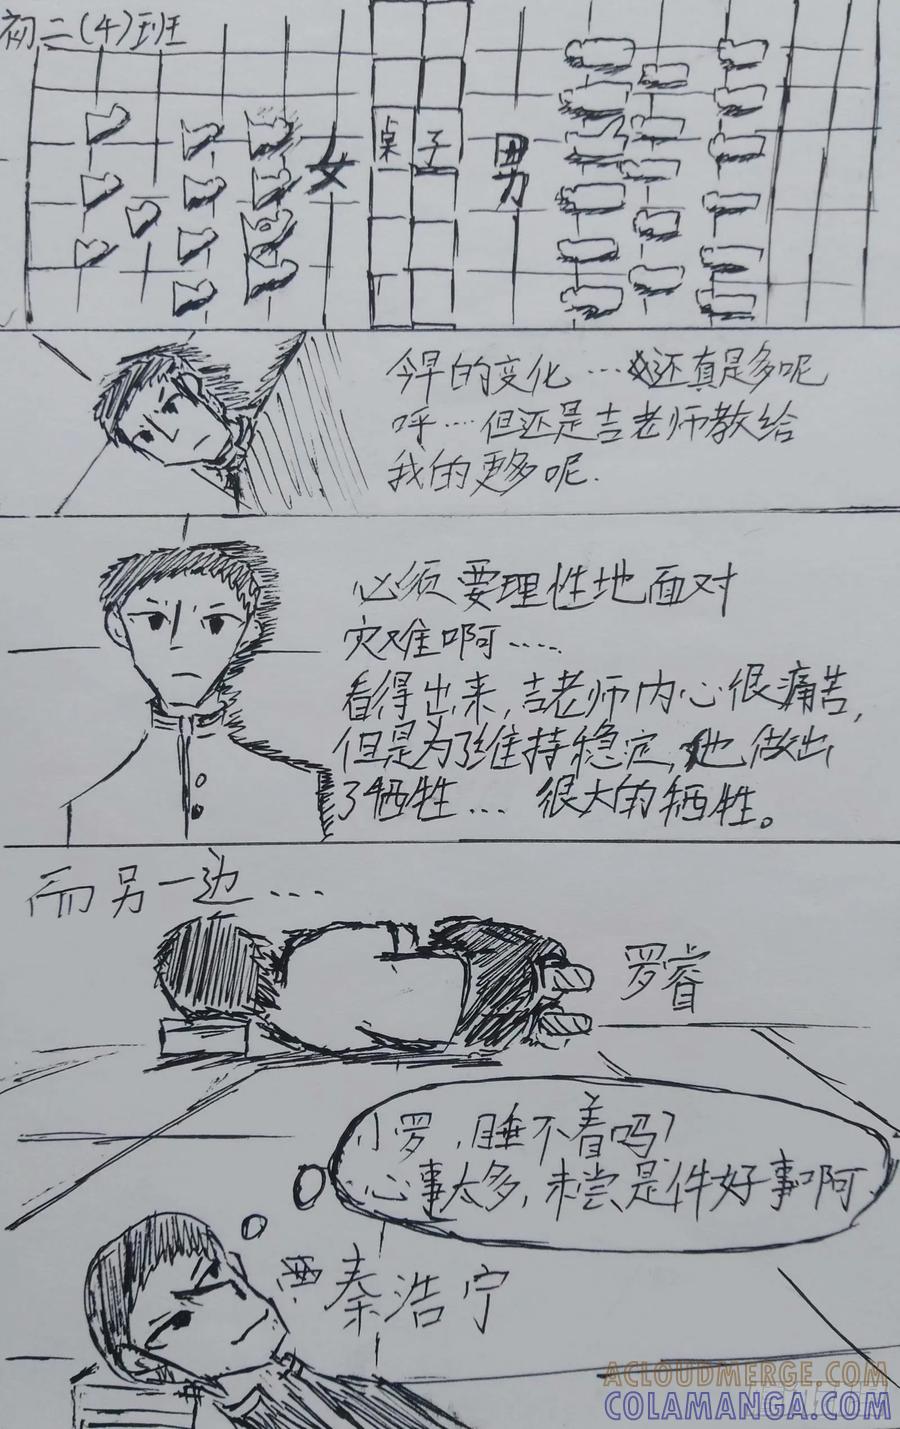 初二(4)班
女
桌子
男
今早的变化…还真是多呢
呼……但还是吉老师教给
我的更多呢.
必须要理性地面对
灾难啊……
看得出来,吉老师内心很痛苦,
但是为了维持稳定,他做出
了牺牲… 很大的牺牲。
而另一边…
罗睿
小罗,睡不着吗?
心事太多,未尝是件好事啊
秦浩宁
ACLOUDMERGE.COM
COLAMANGA.COM